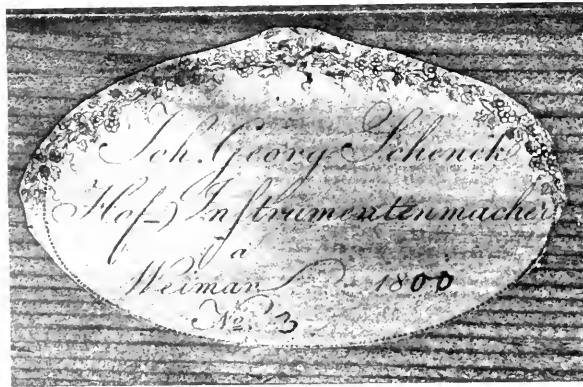 Joh. Georg Schenck
Hof-Instrumentenmacher
a
Weimar 1800
No. 3